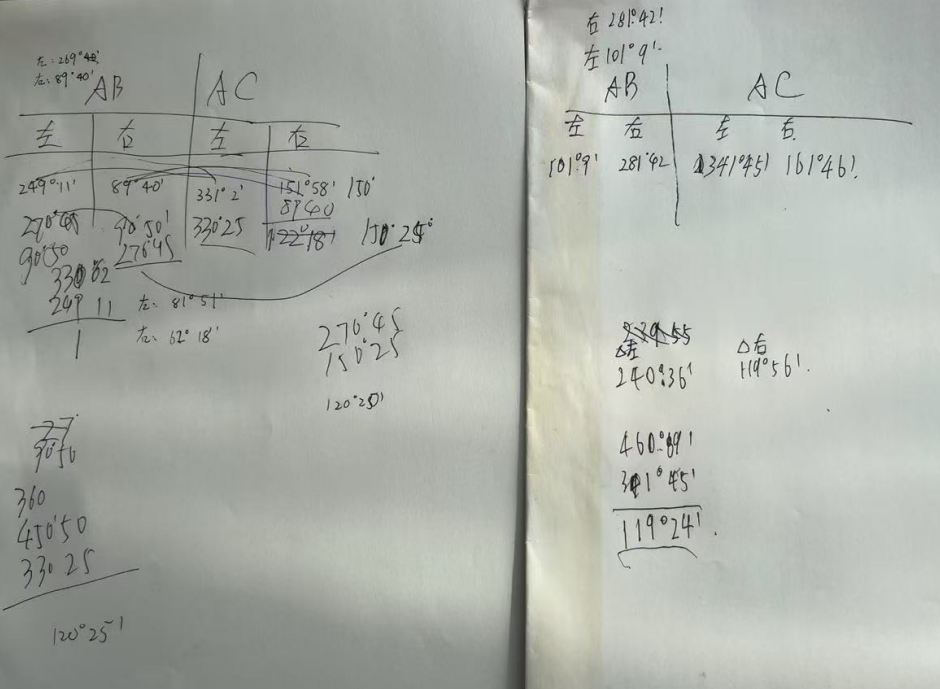 左: 269°40'
右: 89°40'
AB AC
左 右 左 右
249°11' 89°40' 331°2' 151°58' 150°
8940
270°45 90°50' 330°25 122°18' 150°25
90°50 276°45
330 02
249 11 左: 81°51'
1 右: 62°18'
270°45
150°25
120°20'
27
90°50
360
450°50
330 25
120°25'
右 281°42'
左 101°9'
AB AC
左 右 左 右
101°9' 281°42 341°45' 161°46'
239°55
△左 △右
240°36' 119°56'
460°69'
341°45'
119°24'